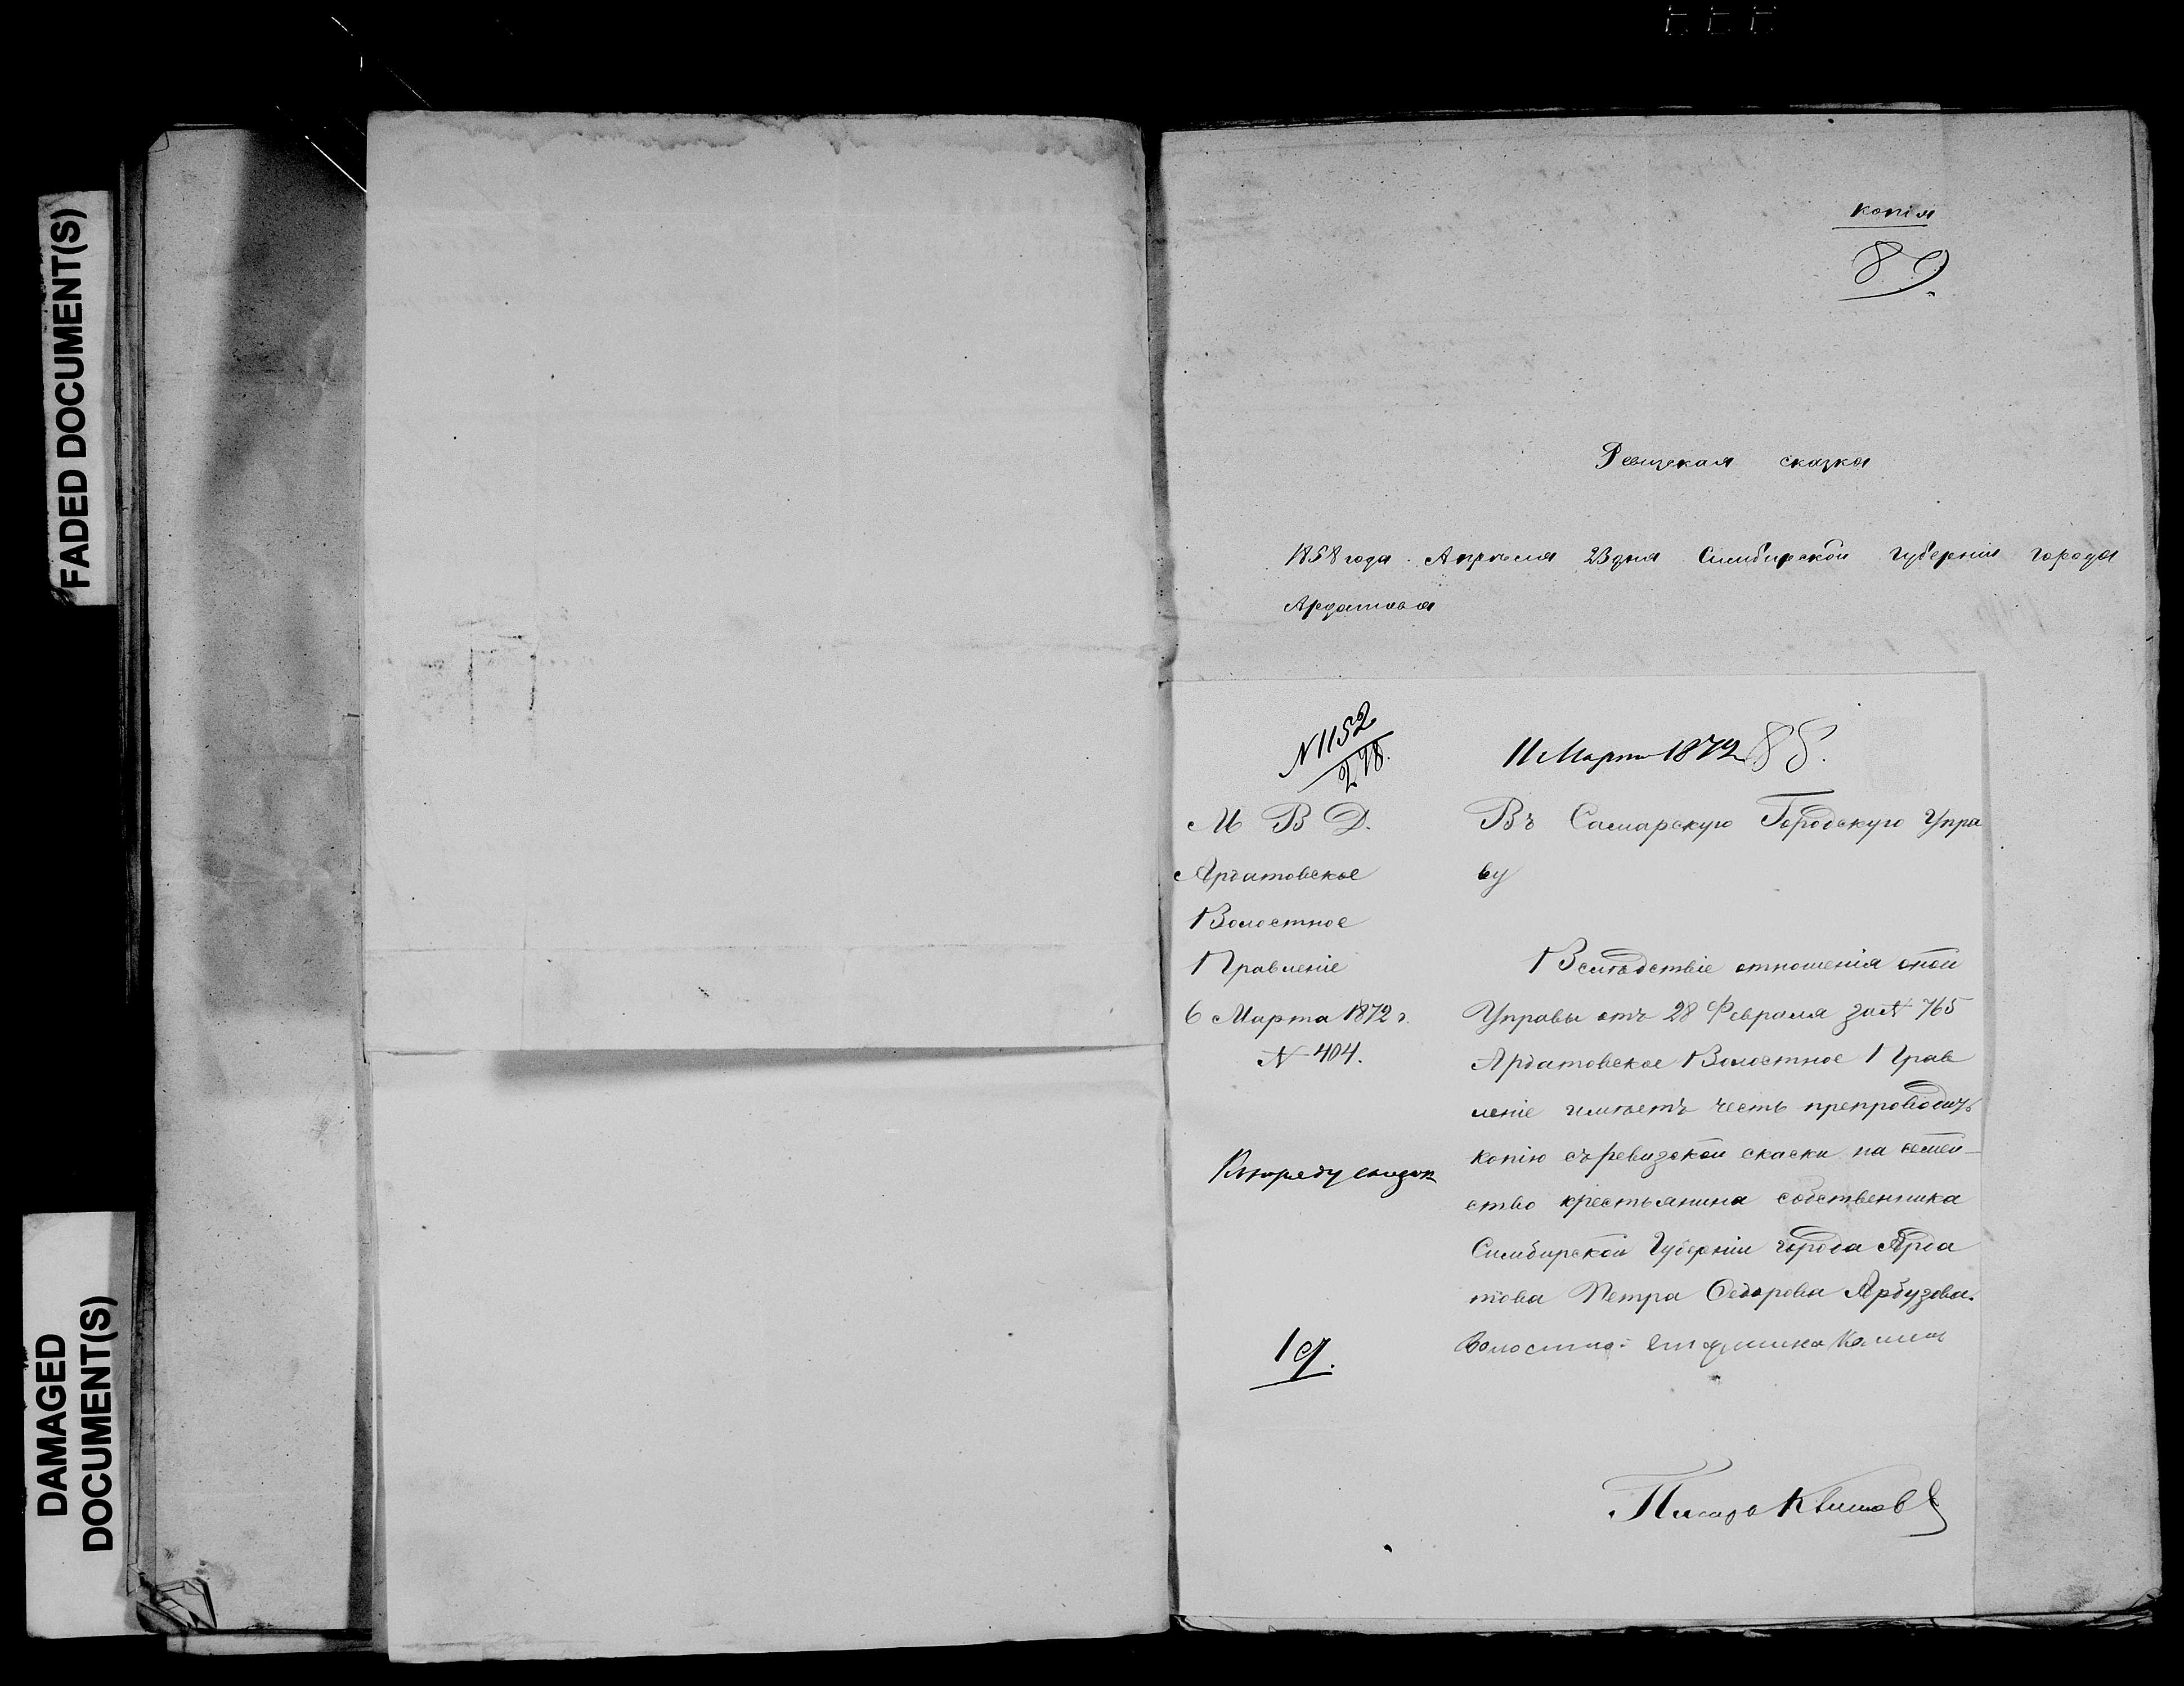 FADED DOCUMENT(S)
DAMAGED
DOCUMENT(S)
копія
89.
Ревизская сказка
1858 года Апрѣля 23 дня Симбирской губерніи города
Ардатова
N 1152
278.
11 Марта 1872 85.
М В Д.
Ардатовское
Волостное
Правленіе
6 Марта 1872 г.
N 404.
19.
Въ Самарскую Городскую Упра
ву
Вслѣдствіе отношенія оной
Управы отъ 28 Февраля за N 765
Ардатовское Волостное Прав
леніе имѣетъ честь препроводить
копію съ ревизской скаски на семей-
ство крестьянина собственника
Симбирской Губерніи города Арда
това Петра Федорова Арбузова.
Волостной старшина
Писарь